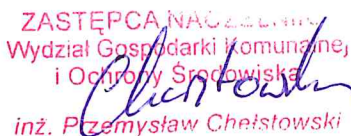 ZASTĘPCA NACZELNIKA
Wydział Gospodarki Komunalnej
i Ochrony Środowiska
inż. Przemysław Chełstowski